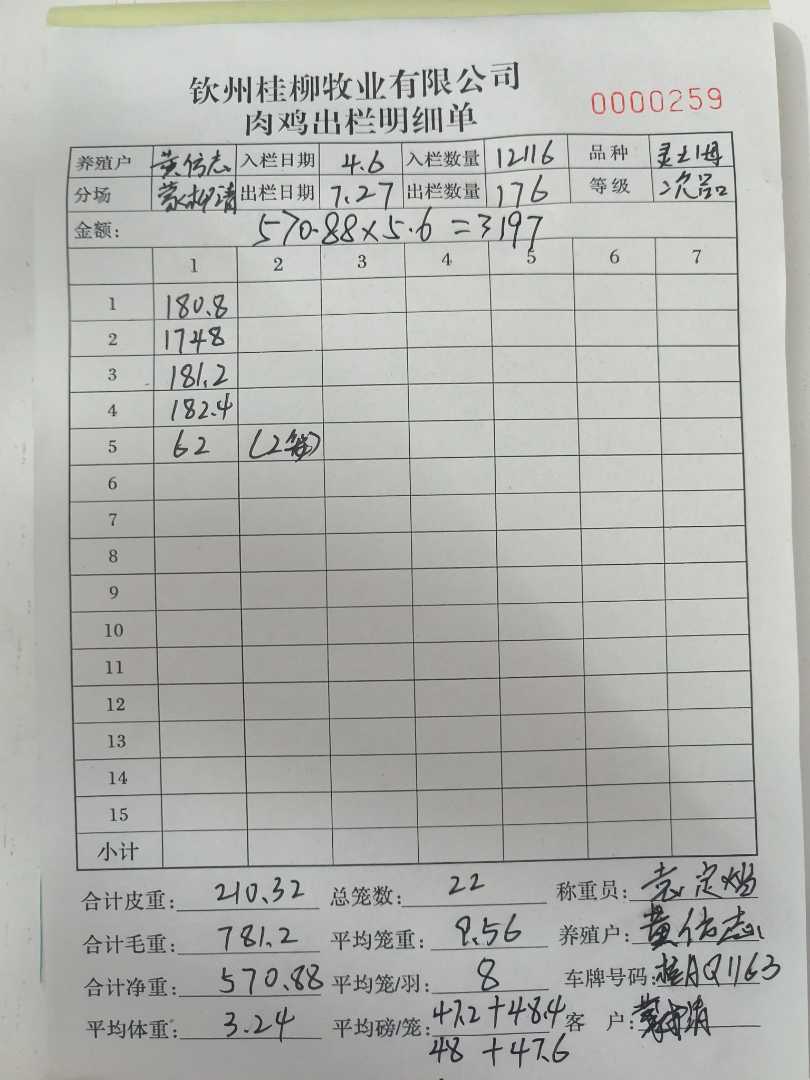 钦州桂柳牧业有限公司
肉鸡出栏明细单
0000259
养殖户 黄信志 入栏日期 4.6 入栏数量 12116 品种 灵土博
分场 蒙柳清 出栏日期 7.27 出栏数量 176 等级 次品
金额: 570.88×5.6=3197
1 2 3 4 5 6 7
1 180.8
2 1748
3 181.2
4 182.4
5 62
6
7
8
9
10
11
12
13
14
15
小计
合计皮重: 210.32 总笼数: 22 称重员: 定
合计毛重: 781.2 平均笼重: 9.56 养殖户: 黄信志
合计净重: 570.88 平均笼/羽: 8 车牌号码: 桂AQ1163
平均体重: 3.24 平均磅/笼: 47.2+48.4 客 户:
48 +47.6